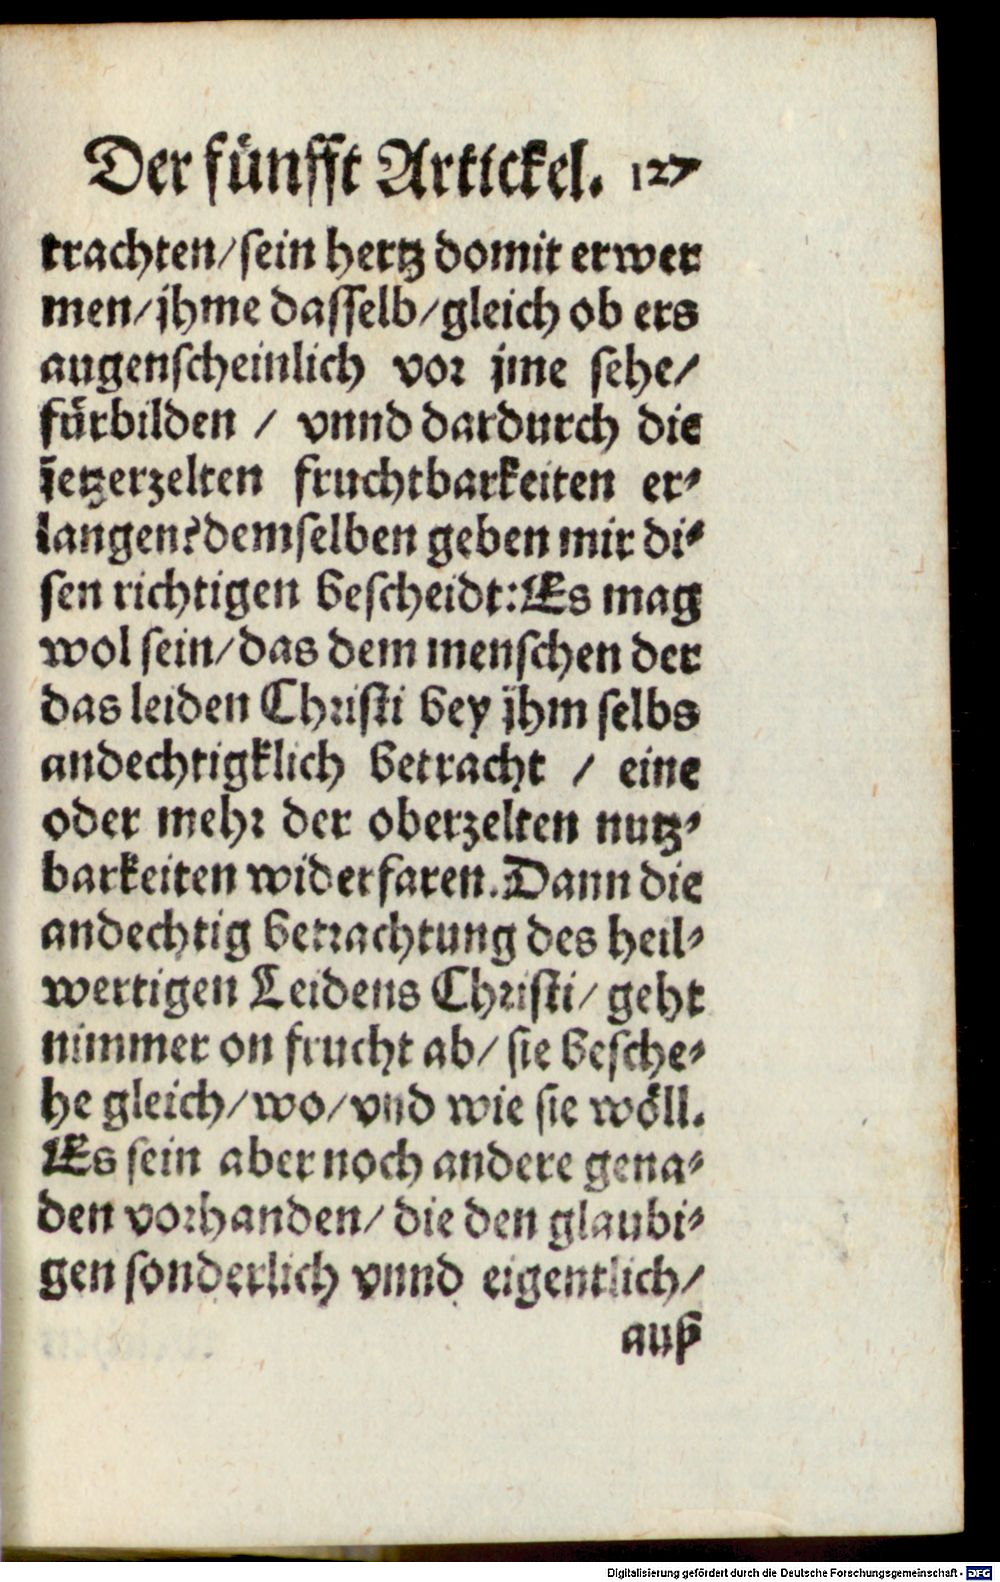 Der fünfft Artickel. 127
trachten/sein hertz domit erwer
men/jhme dasselb/gleich ob ers
augenscheinlich vor jme sehe/
fürbilden / vnnd dardurch die
jetzerzelten fruchtbarkeiten er-
langen? demselben geben mir di-
sen richtigen bescheidt: Es mag
wol sein/das dem menschen der
das leiden Christi bey jhm selbs
andechtigklich betracht / eine
oder mehr der oberzelten nutz-
barkeiten widerfaren. Dann die
andechtig betrachtung des heil-
wertigen Leidens Christi/ geht
nimmer on frucht ab/ sie besche-
he gleich/wo/vnd wie sie wöll.
Es sein aber noch andere gena-
den vorhanden/ die den glaubi-
gen sonderlich vnnd eigentlich/
auß
Digitalisierung gefördert durch die Deutsche Forschungsgemeinschaft - DFG